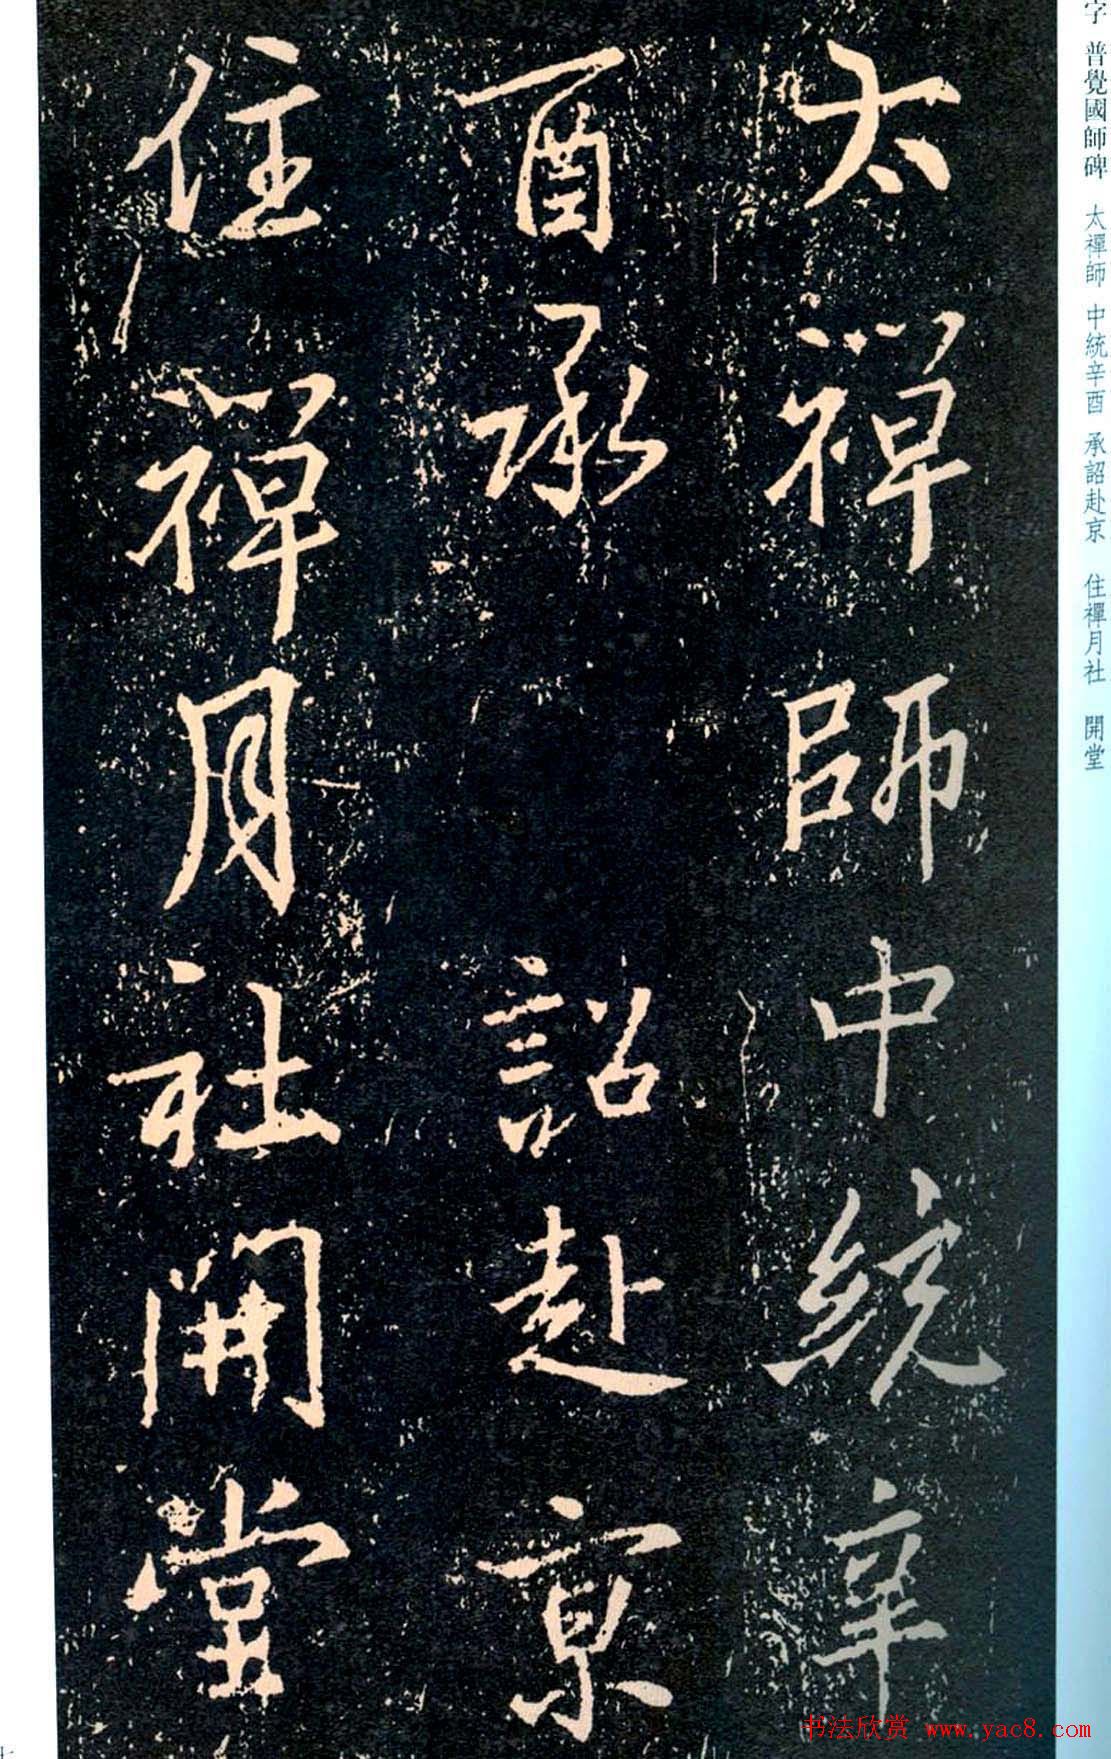 字 普覺國師碑 太禪師 中統辛酉 承詔赴京 住禪月社 開堂
太禪師中統辛
酉承 詔赴京
住禪月社開堂
书法欣赏 www.yac8.com